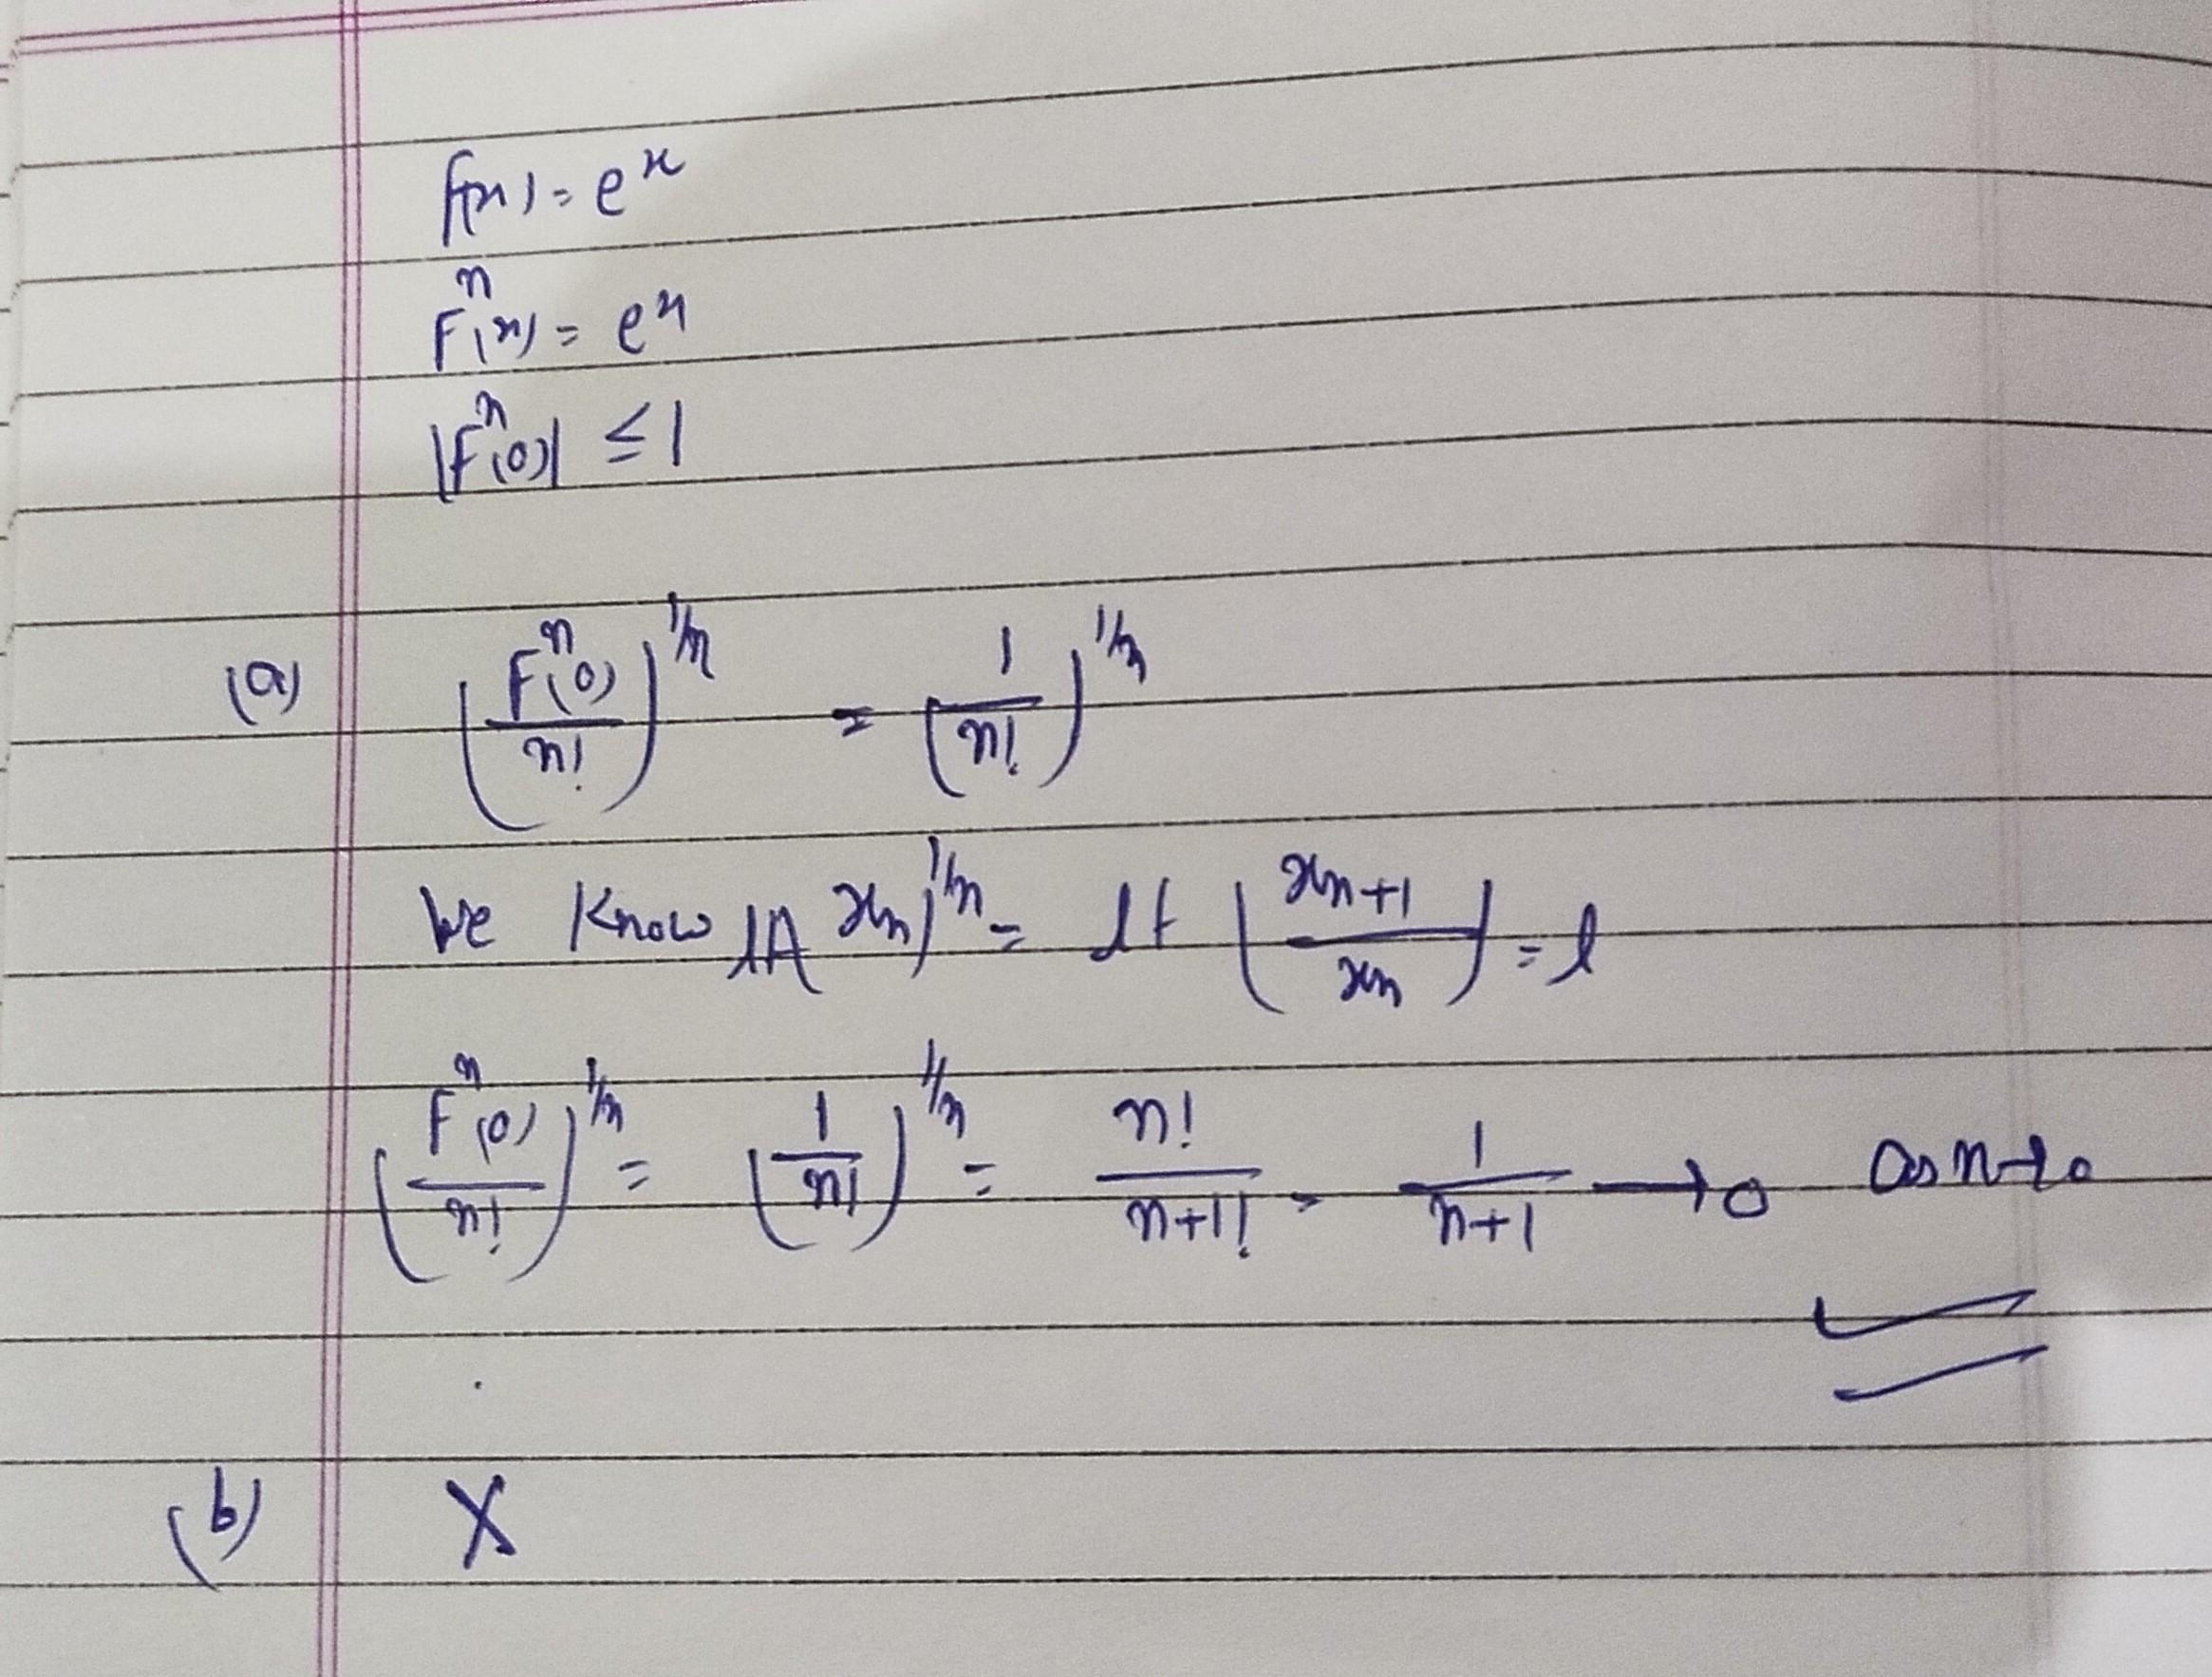 f(x) = e^x
F^n(x) = e^x
|F^n(0)| ≤ 1
(a) (F^n(0)/n!)^1/n = (1/n!)^1/n
We Know lt x_n)^1/n = lt (x_n+1/x_n) = l
(F^n(0)/n!)^1/n = (1/n!)^1/n = n!/n+1! = 1/n+1 → 0 as n→
(b) X